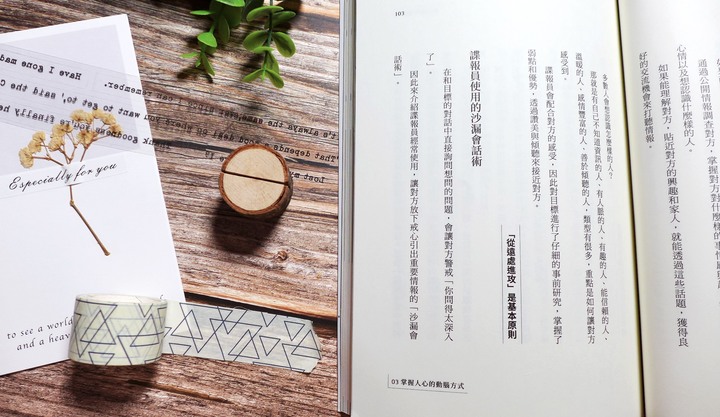 通過公開情報調查對方，掌握對方對什麼樣的事情感
心情以及想認識什麼樣的人。
如果能理解對方，貼近對方的興趣和家人，就能透過這些話題，獲得良
好的交流機會來打聽情報。
103
多數人會想認識怎麼樣的人？
那就是有自己不知道資訊的人、有人脈的人、有趣的人、能信賴的人、
溫暖的人、感情豐富的人、善於傾聽的人，類型有很多，重點是如何讓對方
感受到。
諜報員會配合對方的感受，因此對目標進行了仔細的事前研究，掌握了
弱點和優勢，透過讚美與傾聽來接近對方。
「從遠處進攻」是基本原則
諜報員使用的沙漏會話術
在和目標的對話中直接詢問想問的問題，會讓對方警戒「你問得太深入
了」。
因此來介紹諜報員經常使用，讓對方放下戒心引出重要情報的「沙漏會
話術」。
03 掌握人心的動腦方式
Have I gone mad
remember.
Especially for you
to see a world
and a heav